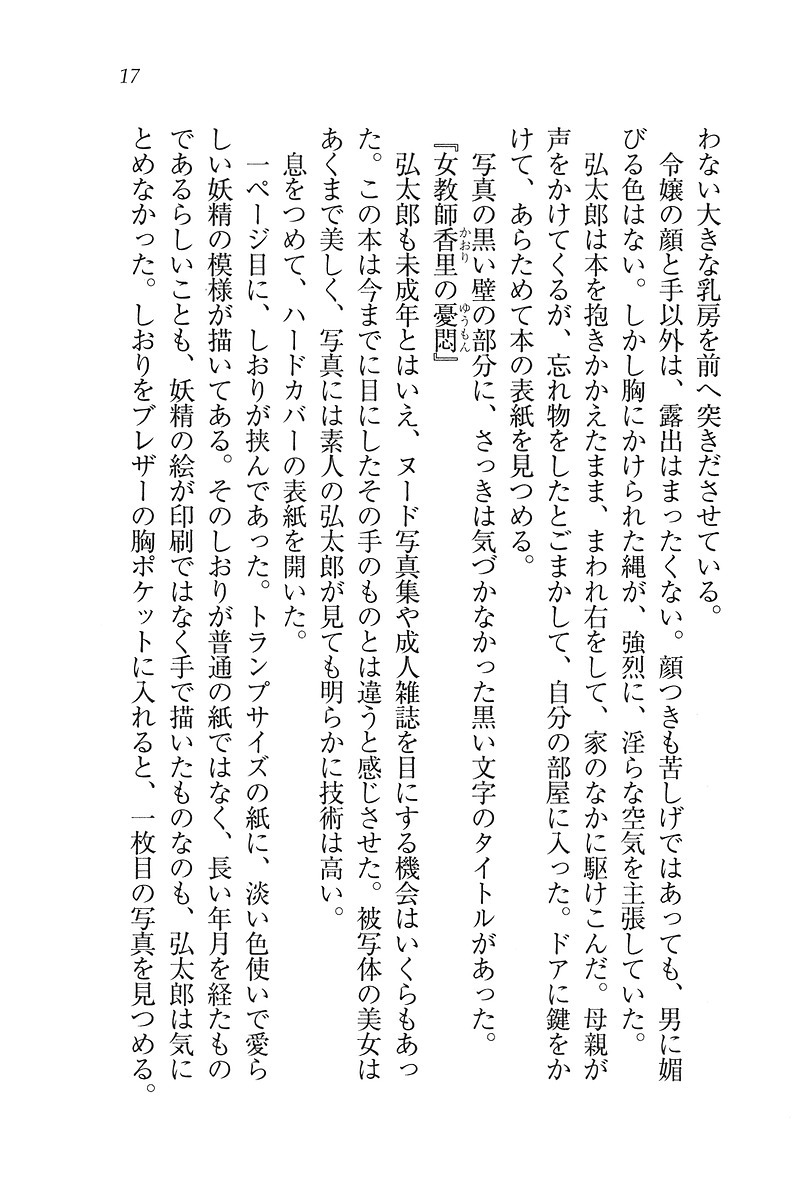 17
わない大きな乳房を前へ突きださせている。
令嬢の顔と手以外は、露出はまったくない。顔つきも苦しげではあっても、男に媚
びる色はない。しかし胸にかけられた縄が、強烈に、淫らな空気を主張していた。
弘太郎は本を抱きかかえたまま、まわれ右をして、家のなかに駆けこんだ。母親が
声をかけてくるが、忘れ物をしたとごまかして、自分の部屋に入った。ドアに鍵をか
けて、あらためて本の表紙を見つめる。
写真の黒い壁の部分に、さっきは気づかなかった黒い文字のタイトルがあった。
『女教師香里かおりの憂悶ゆうもん』
弘太郎も未成年とはいえ、ヌード写真集や成人雑誌を目にする機会はいくらもあっ
た。この本は今までに目にしたその手のものとは違うと感じさせた。被写体の美女は
あくまで美しく、写真には素人の弘太郎が見ても明らかに技術は高い。
息をつめて、ハードカバーの表紙を開いた。
一ページ目に、しおりが挟んであった。トランプサイズの紙に、淡い色使いで愛ら
しい妖精の模様が描いてある。そのしおりが普通の紙ではなく、長い年月を経たもの
であるらしいことも、妖精の絵が印刷ではなく手で描いたものなのも、弘太郎は気に
とめなかった。しおりをブレザーの胸ポケットに入れると、一枚目の写真を見つめる。